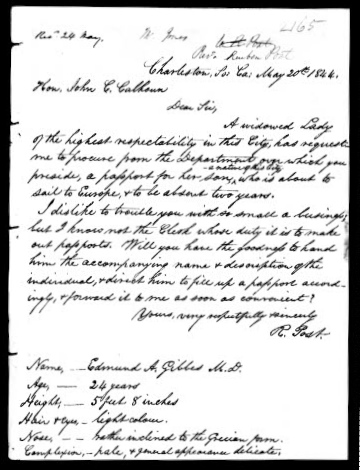 Rec'd 24 May. W. Jones 4165
Rev'd Reuben Post
Charleston, So: Ca: May 20th 1844.
Hon. John C. Calhoun
Dear Sir,
A widowed Lady
of the highest respectability in this City, has requested
me to procure from the Department over which you
preside, a passport for her son, who is about to
sail to Europe, & to be absent two years.
I dislike to trouble you with so small a business;
but I know not the Clerk whose duty it is to make
out passports. Will you have the goodness to hand
him the accompanying name & description of the
individual, & direct him to fill up a passport accord-
ingly, & forward it to me as soon as convenient?
Yours, very respectfully & sincerely
R. Post.
Name, — Edmund A. Gibbes M.D.
Age, — 24 years
Height, — 5 feet 8 inches
Hair & eyes — light colour.
Nose, — rather inclined to the Grecian form.
Complexion — pale, & general appearance delicate.